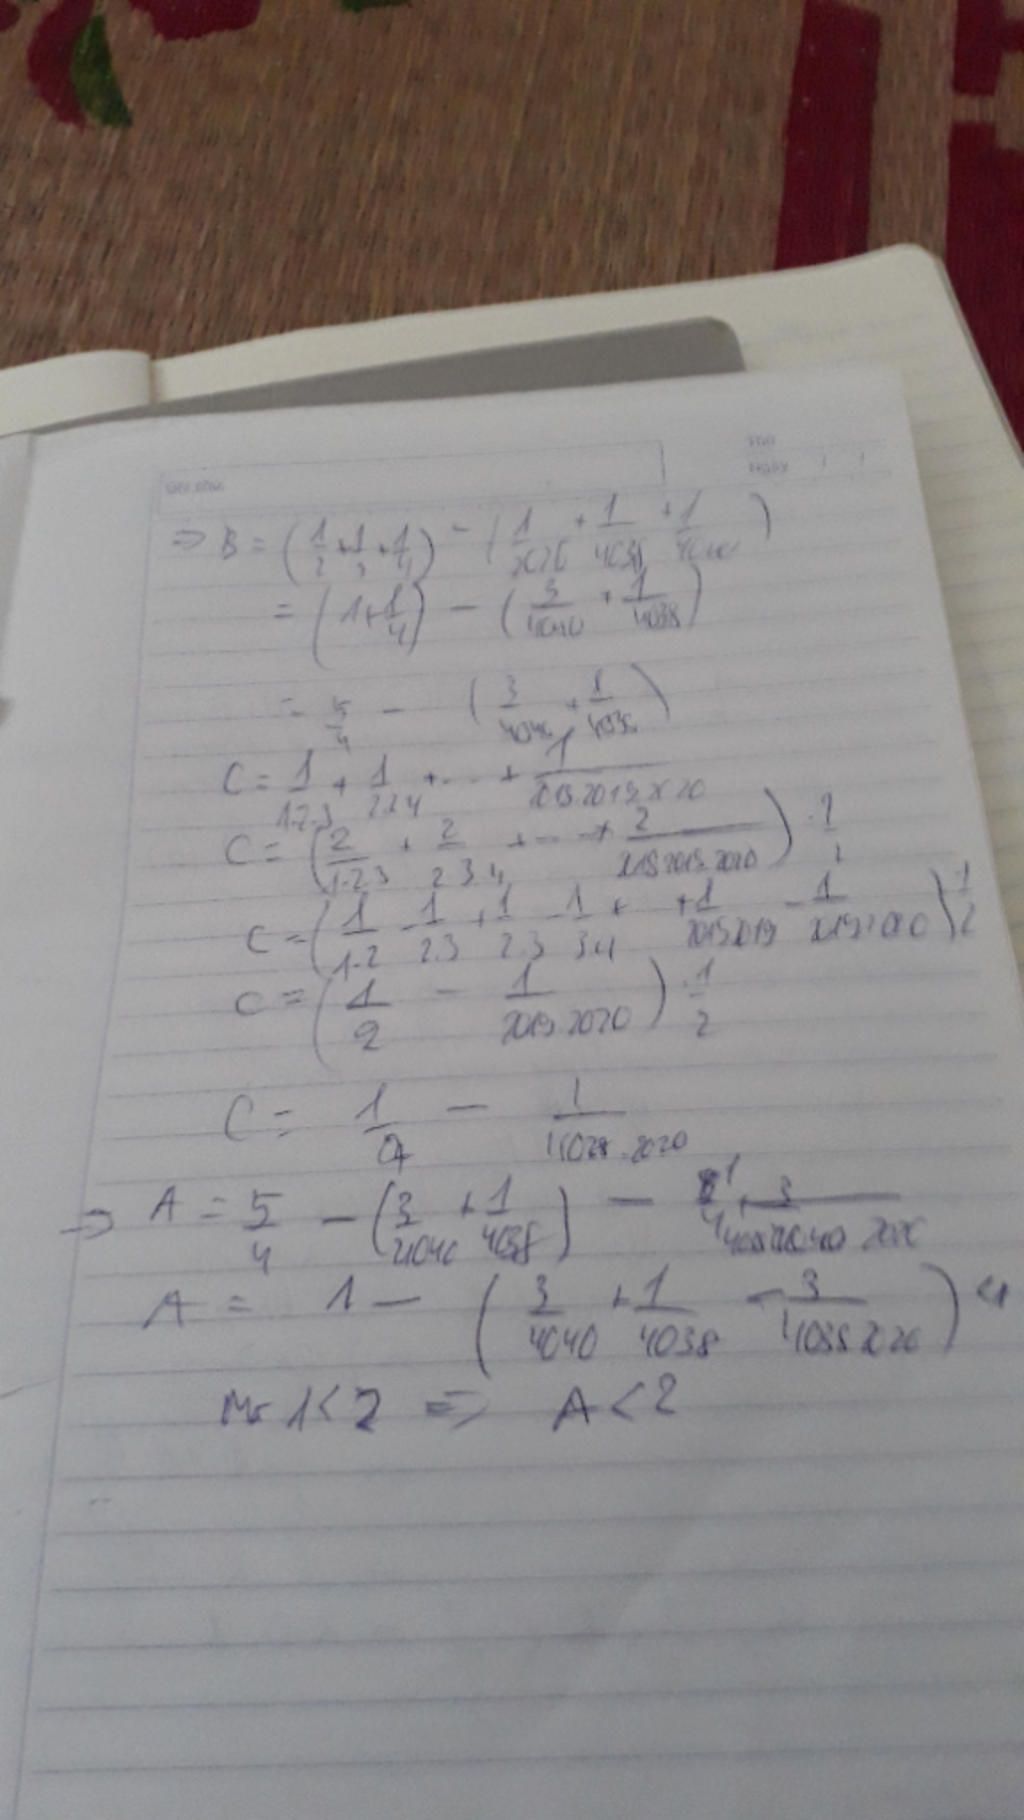 Thứ
Ngày / /
=> B = (1/2 + 1/2 + 1/4) - (1/2020 + 1/4038 + 1/4040)
= (1 + 1/4) - (3/4040 + 1/4038)
= 5/4 - (3/4040 + 1/4038)
C = 1/1.2.3 + 1/2.3.4 + ... + 1/2018.2019.2020
C = (2/1.2.3 + 2/2.3.4 + ... + 2/2018.2019.2020) . 1/
C = (1/1.2 - 1/2.3 + 1/2.3 - 1/3.4 + + 1/2018.2019 - 1/2019.2020) . 1/2
C = (1/2 - 1/2019.2020) . 1/2
C = 1/4 - 1/4038.2020
=> A = 5/4 - (3/4040 + 1/4038) - 1/4 +
A = 1 - (3/4040 + 1/4038 - 3/4038.2020) < 1
Mà 1 < 2 => A < 2